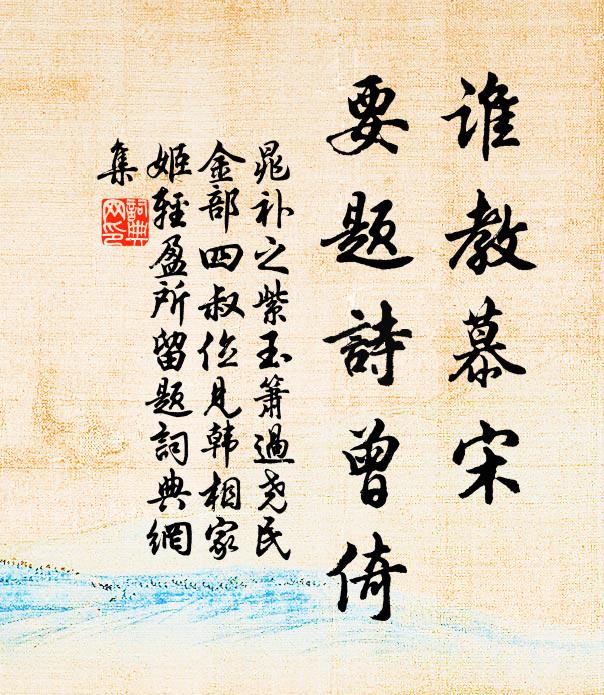 谁教慕宋
要题詩曾倚
晁补之紫玉箫過尧民
金部四叔位見韩相家
姬轻盈所留题詞典網
集
詞典
网印